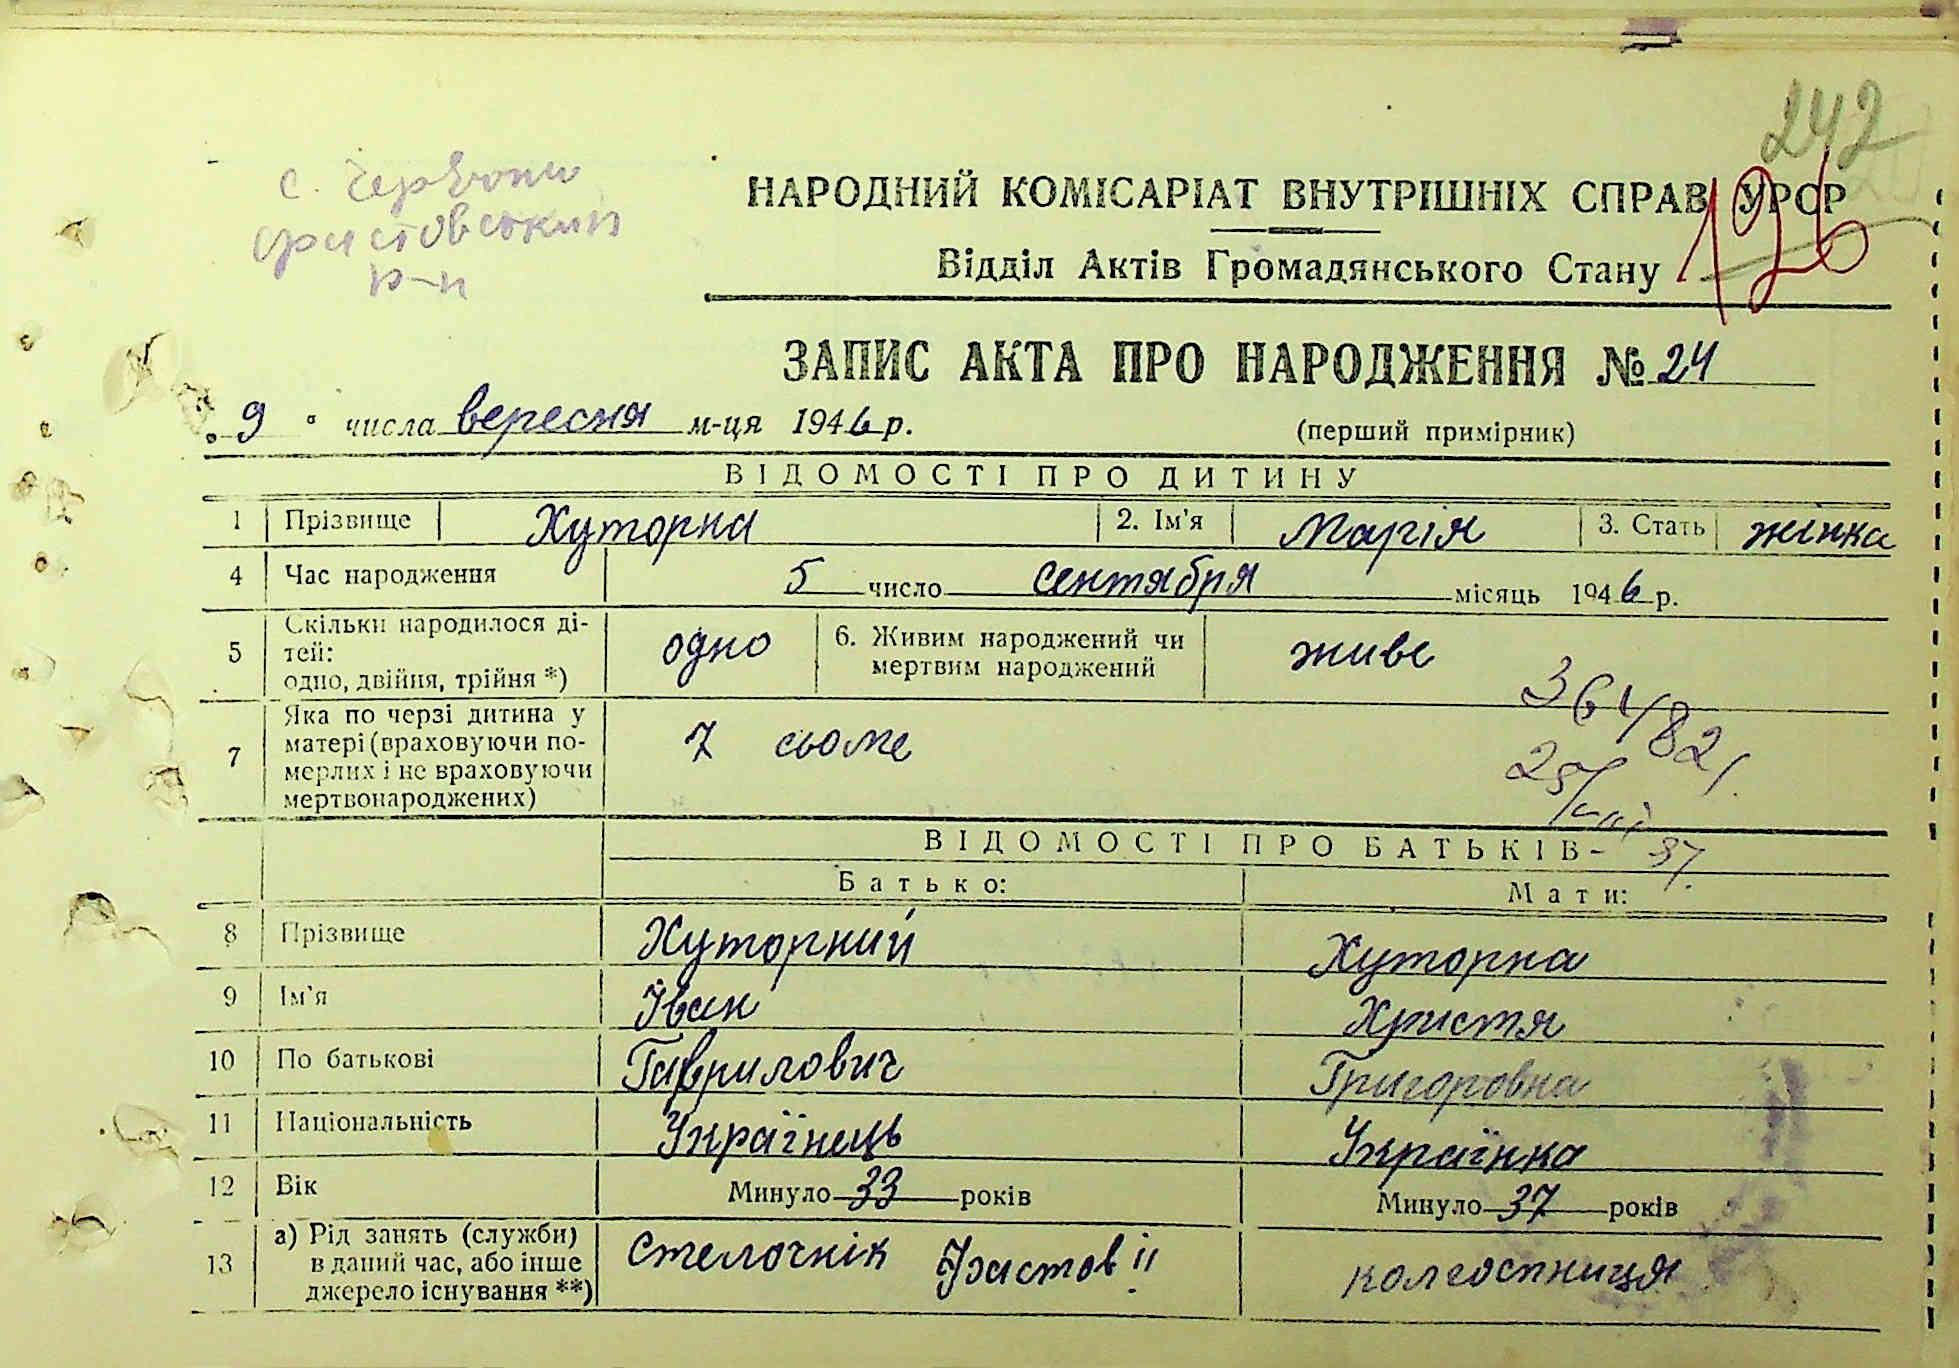 242
с. Червоне
Фастовський
р-н
НАРОДНИЙ КОМІСАРІАТ ВНУТРІШНІХ СПРАВ УРСР
126
Відділ Актів Громадянського Стану
ЗАПИС АКТА ПРО НАРОДЖЕННЯ № 24
„ 9 " числа вересня м-ця 1946 р.
(перший примірник)
ВІДОМОСТІ ПРО ДИТИНУ
1 Прізвище Хуторна 2. Ім'я Марія 3. Стать жінка
4 Час народження 5 число сентября місяць 1946 р.
5 Скільки народилося ді-
тей:
одно, двійня, трійня *) одно 6. Живим народжений чи
мертвим народжений живе
7 Яка по черзі дитина у
матері (враховуючи по-
мерлих і не враховуючи
мертвонароджених) 7 сьоме
ВІДОМОСТІ ПРО БАТЬКІВ
Батько: Мати:
8 Прізвище Хуторний Хуторна
9 Ім'я Іван Христя
10 По батькові Гаврилович Григоровна
11 Національність Українець Українка
12 Вік Минуло 33 років Минуло 37 років
13 а) Рід занять (служби)
в даний час, або інше
джерело існування **) Стелочнік Фастов II колгоспниця